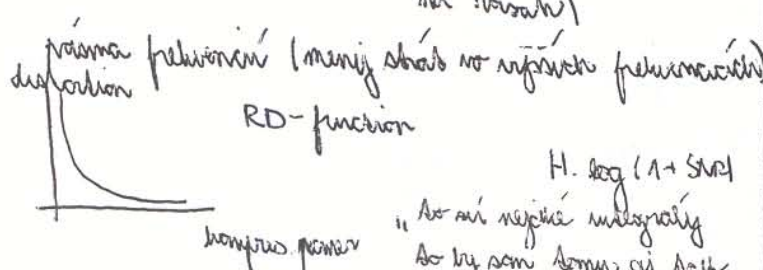 pásma frekvencií (menej strát vo vyšších frekvenciách)
distortion
RD-function
H. log (1+ SNR)
kompres. pomer
„to sú nejaké integrály
to by som